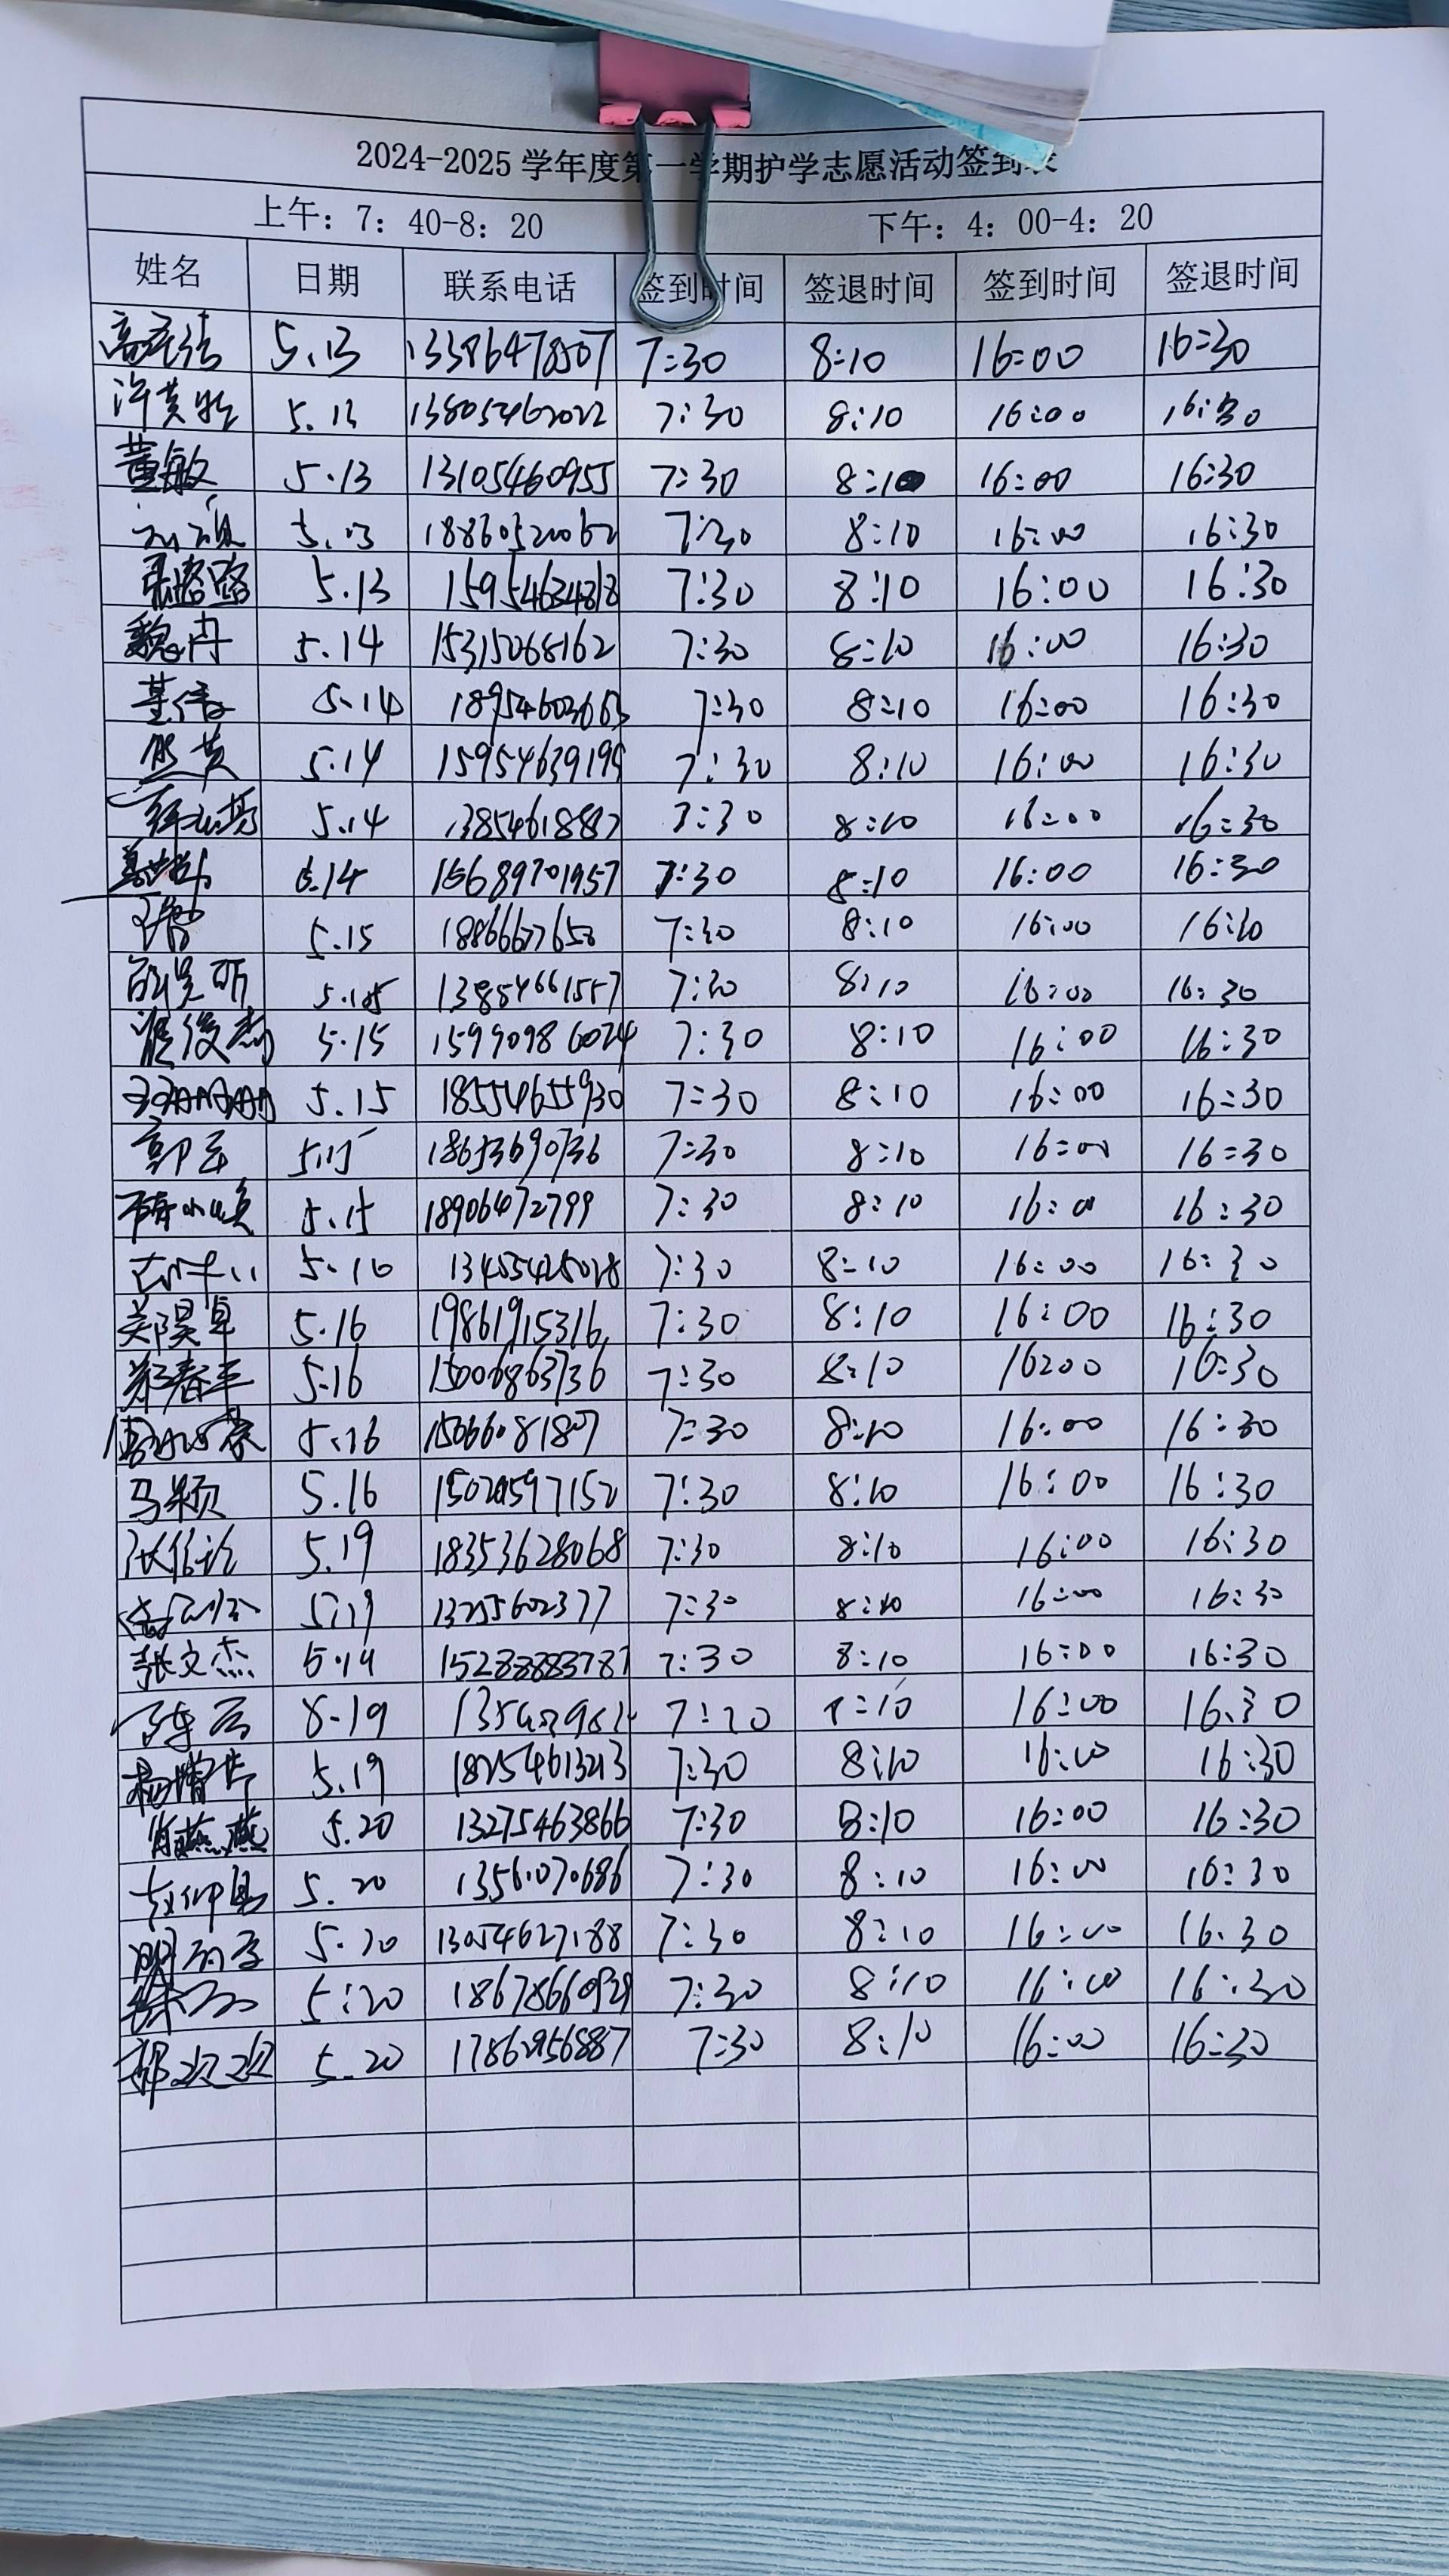 2024-2025 学年度第一学期护学志愿活动签到表
上午：7：40-8：20 下午：4：00-4：20
姓名 日期 联系电话 签到时间 签退时间 签到时间 签退时间
5.13 13386478507 7:30 8:10 16:00 16:30
5.13 13805462022 7:30 8:10 16:00 16:30
董敏 5.13 13105460955 7:30 8:10 16:00 16:30
5.13 18860520062 7:30 8:10 16:00 16:30
张璐璐 5.13 15954634818 7:30 8:10 16:00 16:30
魏冉 5.14 15315068162 7:30 8:10 16:00 16:30
5.14 18954603663 7:30 8:10 16:00 16:30
5.14 15954639199 7:30 8:10 16:00 16:30
5.14 7:30 8:10 16:00 16:30
5.14 15689701957 7:30 8:10 16:00 16:30
5.15 7:30 8:10 16:00 16:30
5.15 13854661557 7:30 8:10 16:00 16:30
5.15 15990986024 7:30 8:10 16:00 16:30
王珊珊 5.15 18554655930 7:30 8:10 16:00 16:30
5.15 18653690736 7:30 8:10 16:00 16:30
5.15 18906472799 7:30 8:10 16:00 16:30
5.16 13455425028 7:30 8:10 16:00 16:30
郑昊卓 5.16 19861915316 7:30 8:10 16:00 16:30
郑春平 5.16 15006863736 7:30 8:10 16:00 16:30
5.16 15066081807 7:30 8:10 16:00 16:30
马颖 5.16 7:30 8:10 16:00 16:30
5.19 18353628068 7:30 8:10 16:00 16:30
5.19 13255602377 7:30 8:10 16:00 16:30
张文杰 5.19 15288883787 7:30 8:10 16:00 16:30
5.19 7:30 8:10 16:00 16:30
5.19 18254613213 7:30 8:10 16:00 16:30
肖燕燕 5.20 13275463866 7:30 8:10 16:00 16:30
5.20 13561070686 7:30 8:10 16:00 16:30
5.20 13054627188 7:30 8:10 16:00 16:30
5:20 18678660929 7:30 8:10 16:00 16:30
5.20 17862956887 7:30 8:10 16:00 16:30